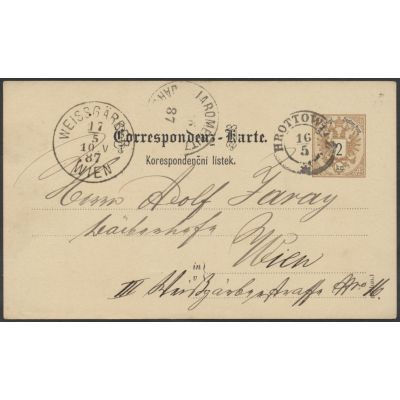 WEISSGÄRBER
17
5
10 V
87
WIEN
JAROMĚŘ
87
HROTTOWITZ
16
5
2
KR.
Correspondenz-Karte.
Korespondenční lístek.
Herrn Adolf Faray
Wien
in
v
III Weißgärberstraße Nro 16